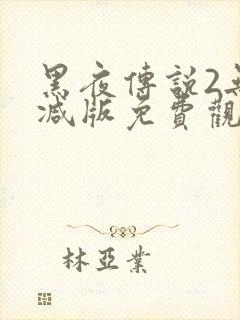 黑夜傳說2無
減版免費觀
林亞業